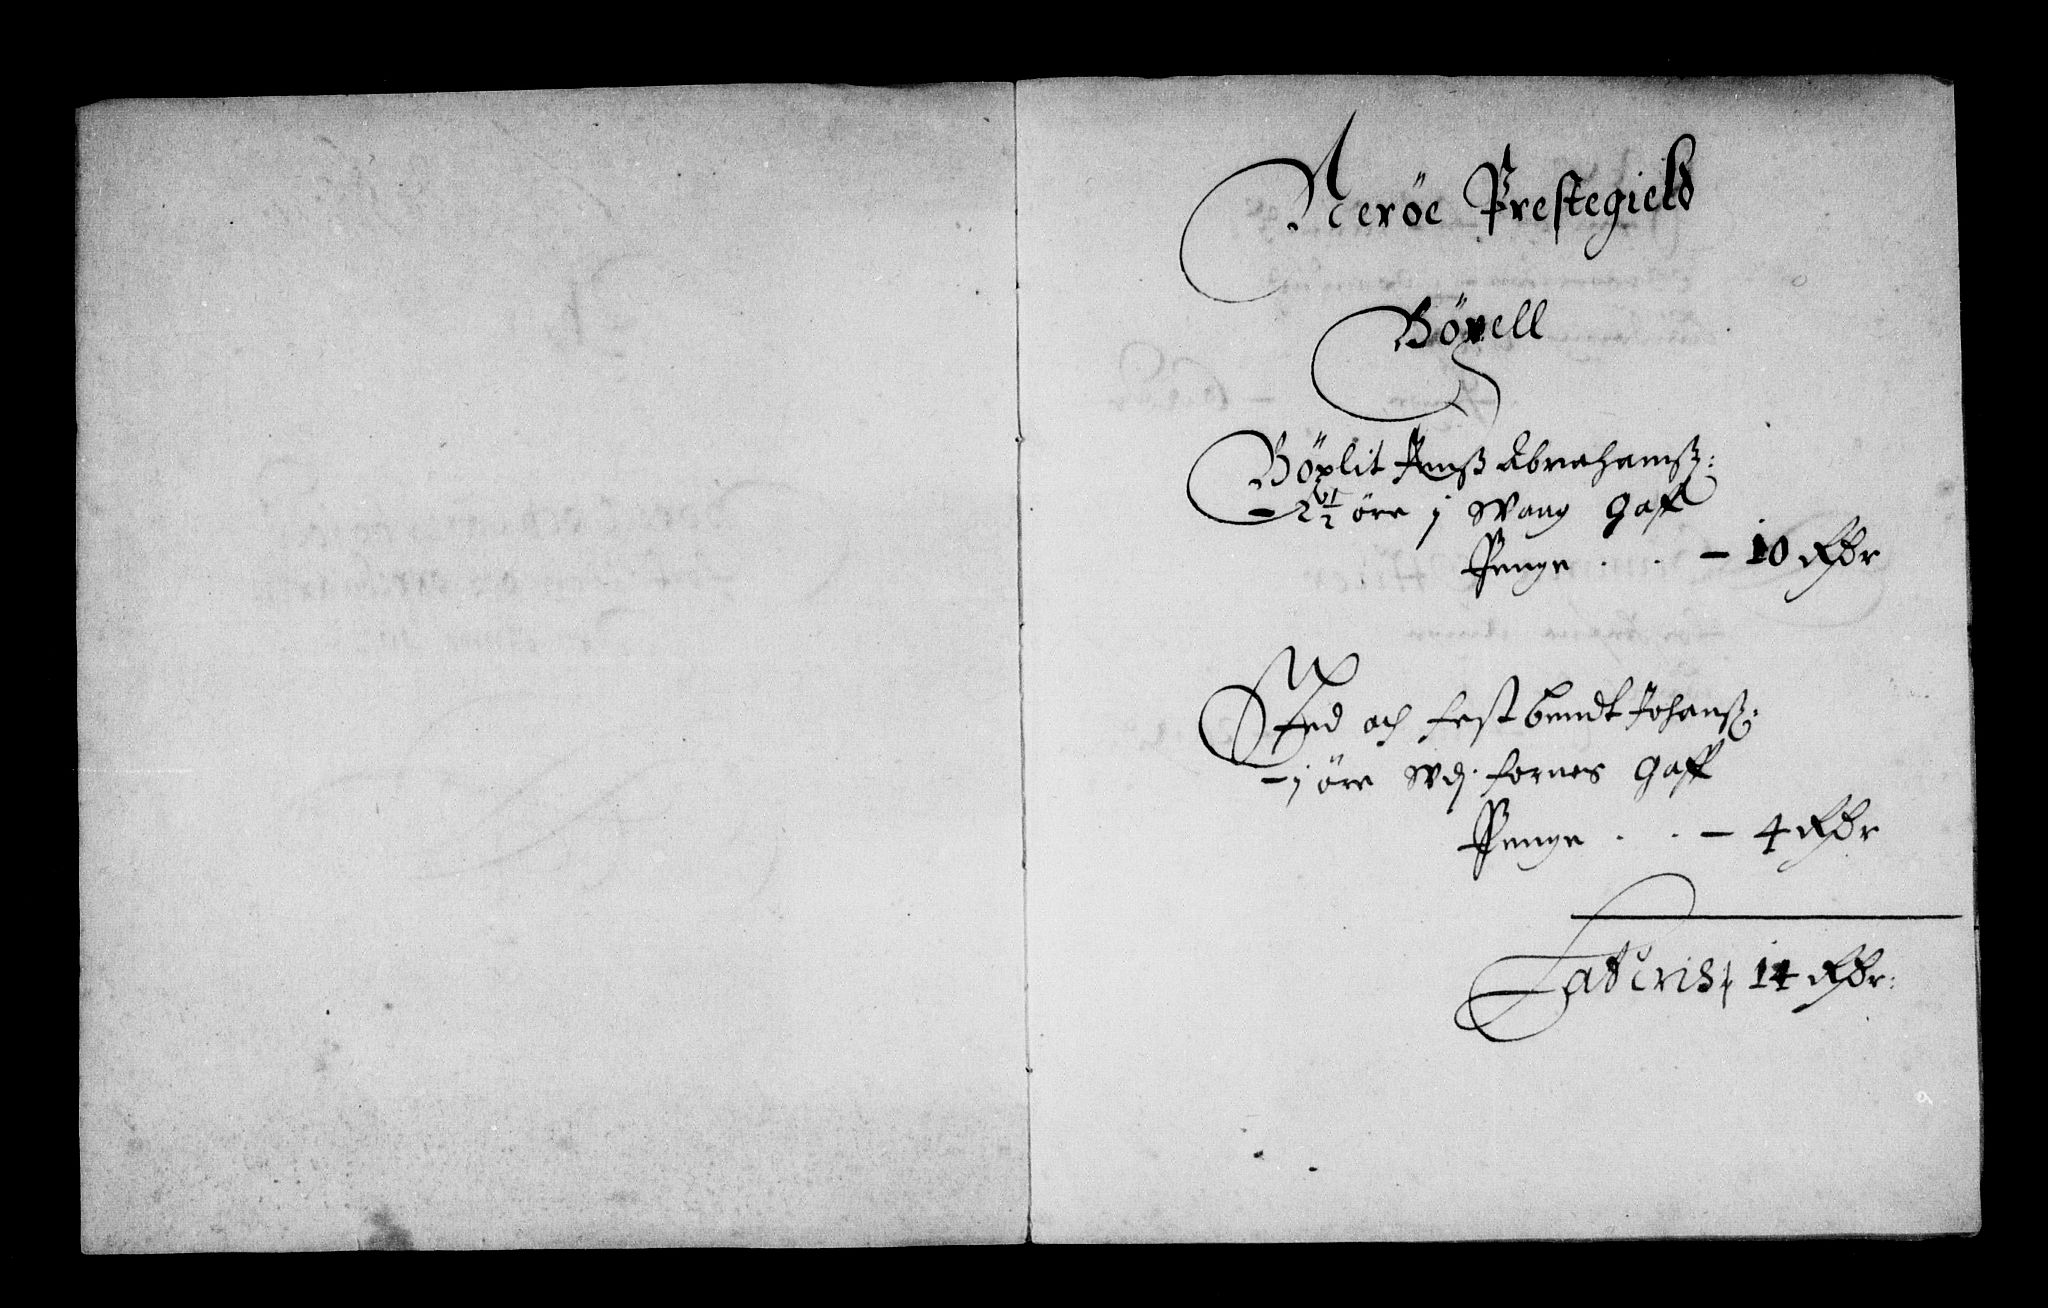 Nerøe Prestegield
Böxell
Böxlit Jenß Abrahamß:
- 2 1/2 öre j Wang Gaff
Penge . . - 10 Rdr
Sted och fest bendt Johanß:
- j öre wdj fornes Gaff
Penge . . - 4 Rdr
Lateris 14 Rdr: